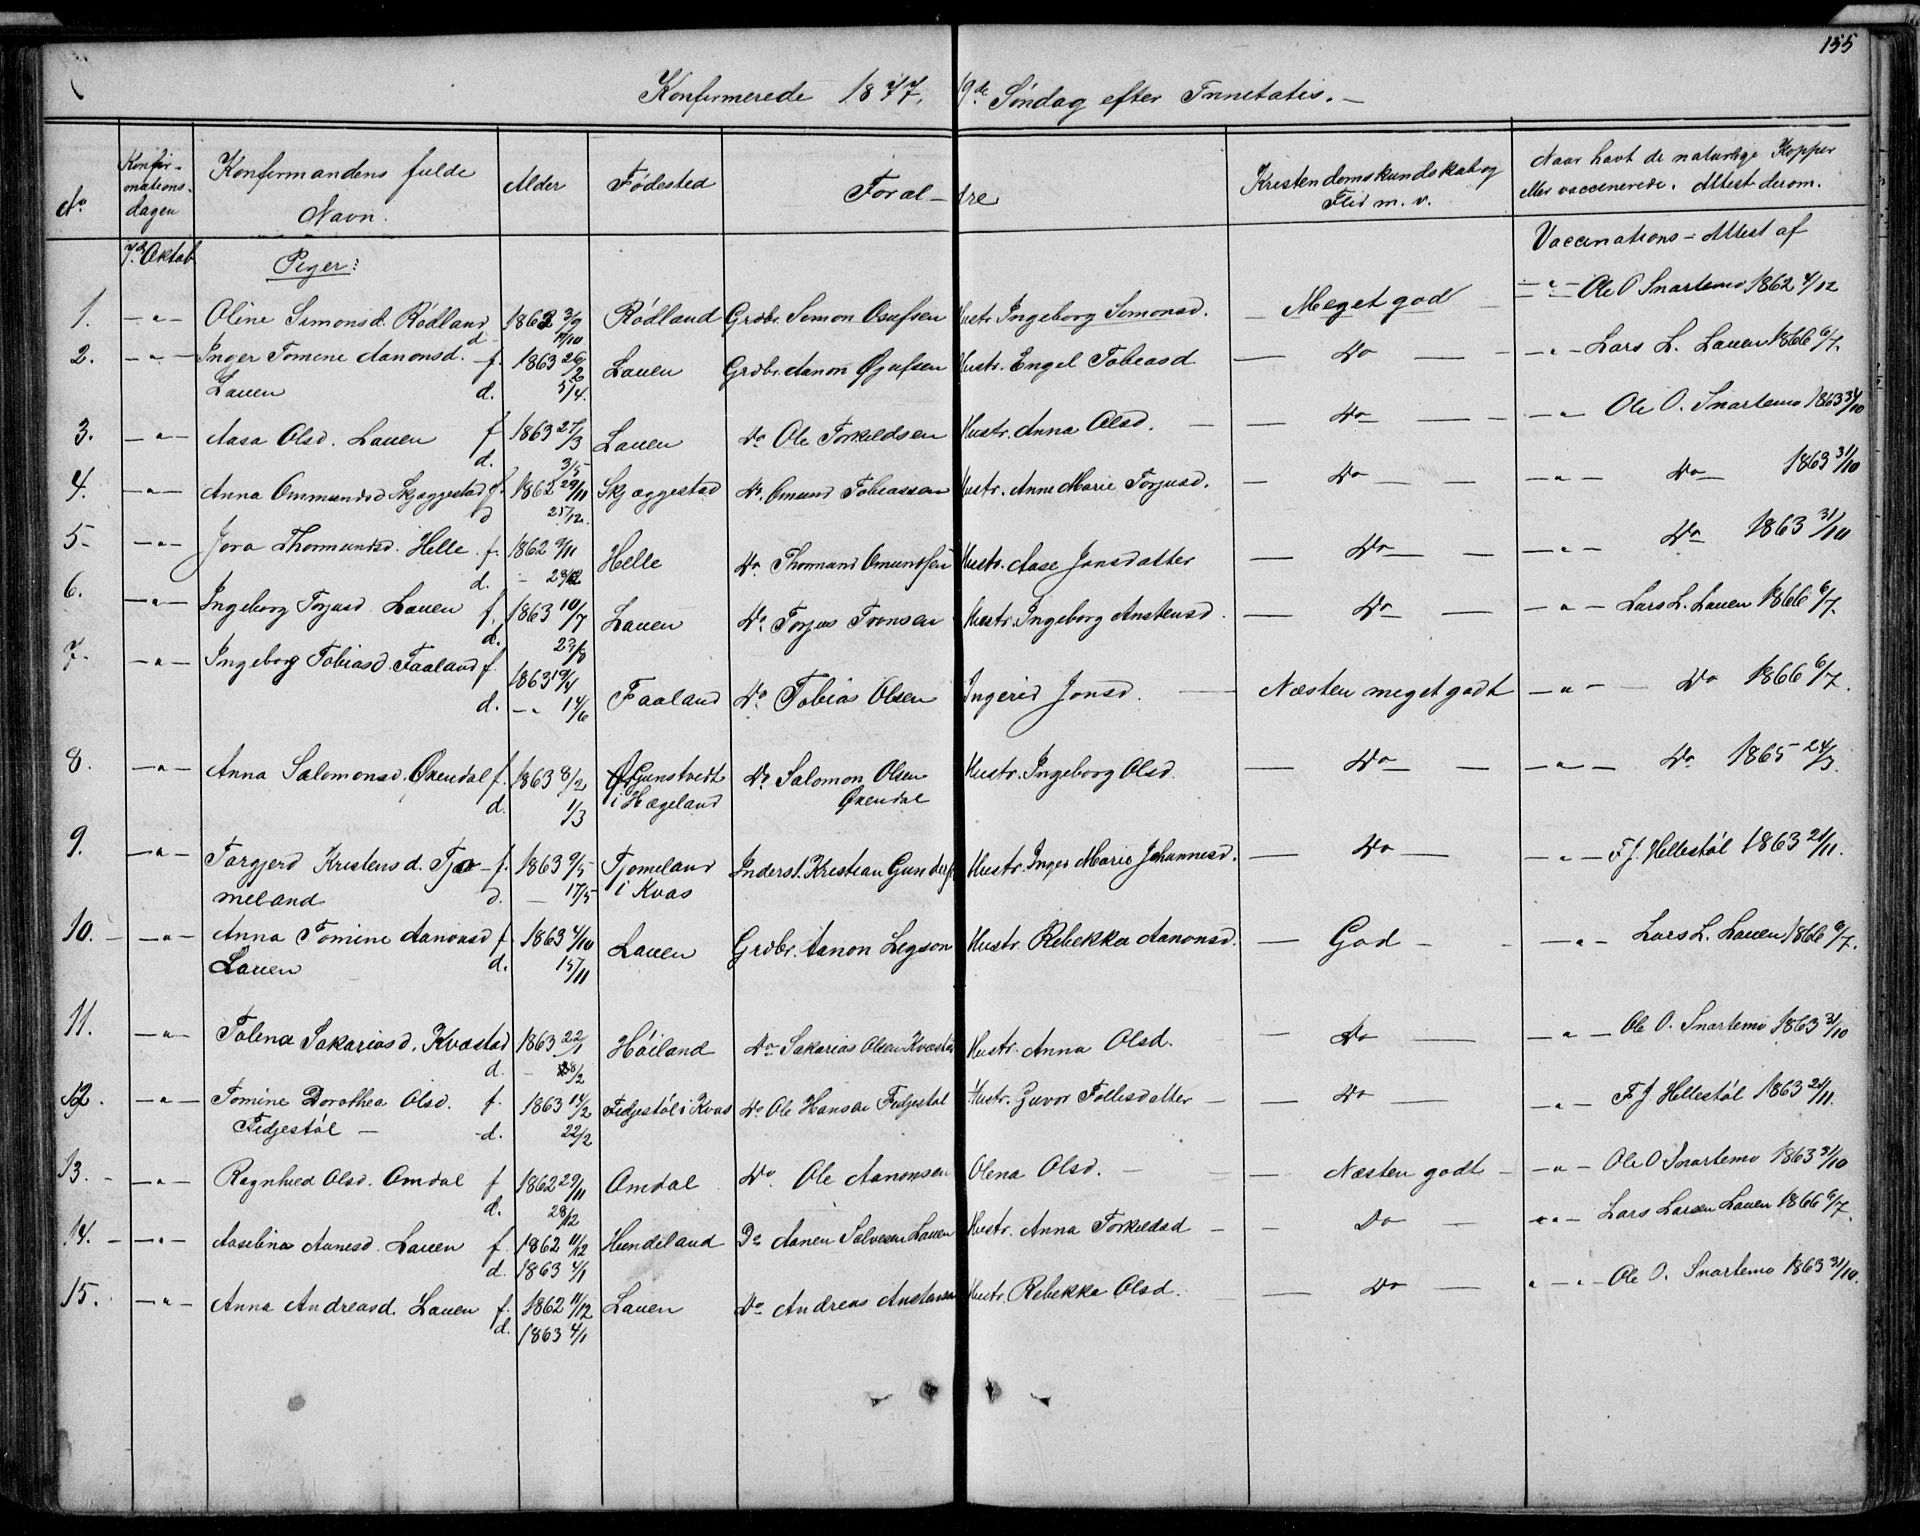 155
Konfirmerede 1877, 19de Søndag efter Trinitatis. —
No
Konfir-
mations-
dagen
Konfirmandens fulde
Navn.
Alder
Fødested
Foræl-dre
Kristendomskundskab og
Flid m. v.
Naar havt de naturlige Kopper
eller vaccinerede. Attest derom.
7de Oktob
Piger:
Vaccinations-Attest af
1. — " — Oline Simonsd. Rødland 1862 3/9 Rødland Grdbr. Simon Osufsen Hustr. Ingeborg Simonsd. Meget god — " — Ole O Snartemo 1862 4/12
d. 19/10
2. — " — Inger Tomine Aanonsd. f. 1863 26/2 Lauen Grdbr. Aanon Øjufsen Hustr. Engel Tobiasd — Do — — " — Lars L. Lauen 1866 6/7.
Lauen d. 5/4.
3. — " — Aasa Olsd. Lauen f 1863 27/3 Lauen Do Ole Torkildsen Hustr. Anna Olsd. — Do — — " — Ole O. Snartemo 1863 31/10
d. 3/5
4. — " — Anna Ommundsd Skjæggestad f. 1862 29/11 Skjæggestad Do. Omund Tobiassen Hustr. Anne Marie Torjusd. — Do — — " — Do — 1863 31/10
d 25/12.
5. — " — Jora Thormundsd. Helle. f. 1862 9/11 Helle Do. Thormand Omundsen Hustr. Aase Jonsdatter — Do — — " — Do 1863 31/10
d. — 28/12
6. — " — Ingeborg Torjusd. Lauen f. 1863 10/7 Lauen Do. Torjus Tronsen Hustr. Ingeborg Anstensd. — Do — — " — Lars L. Lauen 1866 6/7.
d. 23/8
7. — " — Ingeborg Tobiasd. Faaland f. 1863 19/4 Faaland Do Tobias Olsen Ingerid Jonsd. — Næsten meget godt — " — Do 1866 6/7.
d. — " 14/6
8. — " — Anna Salomonsd. Øxendal f. 1863 8/2 Gunstvedt Do Salomon Olsen Hustr. Ingeborg Olsd. — Do — — " — Do 1865 24/3.
d. 1/3 i Hægeland Øxendal
9. — " — Torgjerd Kristensd. Tjo- f. 1863 9/5 Tjomeland Inderst. Kristian Gunders Hustr. Inger Marie Johannesd. — Do — — " — F. J. Hellestøl 1863 21/11.
meland d. — 17/5 i Kvas
10. — " — Anna Tomine Aanonsd f. 1863 4/10 Lauen Grdbr. Aanon Legson Hustr. Rebekka Aanonsd. — God — — " — Lars L. Lauen 1866 6/7.
Lauen d. 15/11
11. — " — Talena Sakariasd. Kvæstad 1863 22/1 Høiland Do Sakarias Olsen Kvæstad Hustr. Anna Olsd. — Do — " — Ole O. Snartemo 1863 31/10
d. — 8/2
12. — " — Tomine Dorothea Olsd. f. 1863 14/2 Fidjestøl i Kvas Do Ole Hansen Fidjestøl Hustr. Guvor Follesdatter — Do — — " — F J Hellestøl 1863 21/11.
Fidjestøl — d. 22/2
13. — " — Ragnhild Olsd. Omdal f 1862 29/11 Omdal Do. Ole Aanonsen Olena Olsd. — Næsten godt — — " — Ole O Snartemo 1863 31/10
d. 28/12
14. — " — Aaselina Aanesd. Lauen f. 1862 11/12 Hundeland Do Aanen Salvesen Lauen Hustr. Anna Torkildsd — Do — — " — Lars Larsen Lauen 1866 6/7.
d. 1863 4/1
15. — " — Anna Andreasd. Lauen f. 1862 11/12 Lauen Do Andreas Anstensen Hustr. Rebekka Olsd. — Do — " — " — Ole O. Snartemo 1863 31/10.
d. 1863 4/1